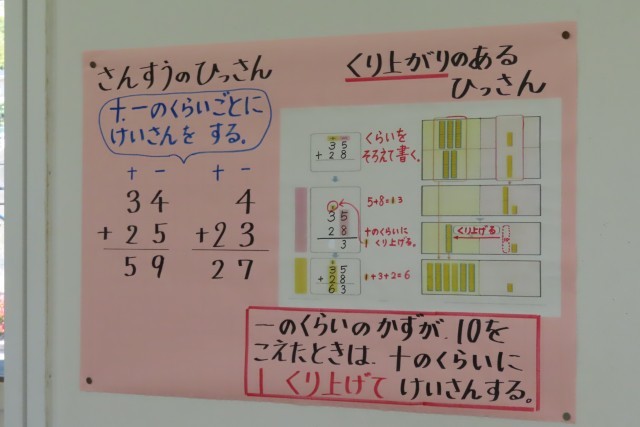 さんすうのひっさん
十、一のくらいごとに
けいさんを する。
十 一
34
+ 25
59
十 一
4
+ 23
27
くり上がりのある
ひっさん
35
+ 28
くらいを
そろえて書く。
35
28
3
5+8=13
十のくらいに
1 くり上げる。
くり上げる
35
+ 28
63
1+3+2=6
一のくらいのかずが、10を
こえたときは、十のくらいに
1 くり上げて けいさんする。